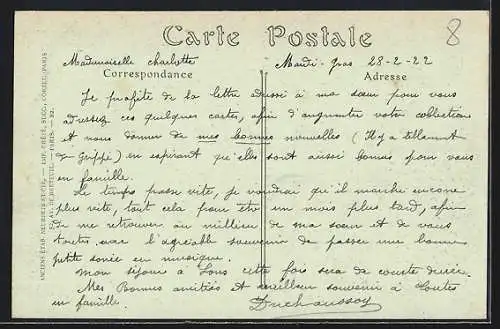 8
Carte Postale
Mademoiselle Charlotte Mardi-gras 28-2-22
Correspondance Adresse
Je profite de la lettre à ma sœur pour vous
adresser ces quelques cartes, afin d'augmenter votre collection
et vous donner de mes bonnes nouvelles (Il y a tellement
de grippe) en espérant qu'elles sont aussi bonnes pour vous
en famille.
Le temps passe vite, je voudrai qu'il marche encore
plus vite, tout cela pour être un mois plus tard, afin
de me retrouver au millieu de ma sœur et de vous
toutes avec l'agréable souvenir de passer une bonne
petite soirée en musique.
Mon séjour à Sous cette fois sera de courte durée.
Mes Bonnes amitiés et meilleur souvenir à toutes
en famille. Duchaussoy
ANCIENS ÉTAB. NEURDEIN ET CIE. — IMP. CRÉTÉ, SUCC., CORBEIL-PARIS
52, AV. DE BRETEUIL. — PARIS.